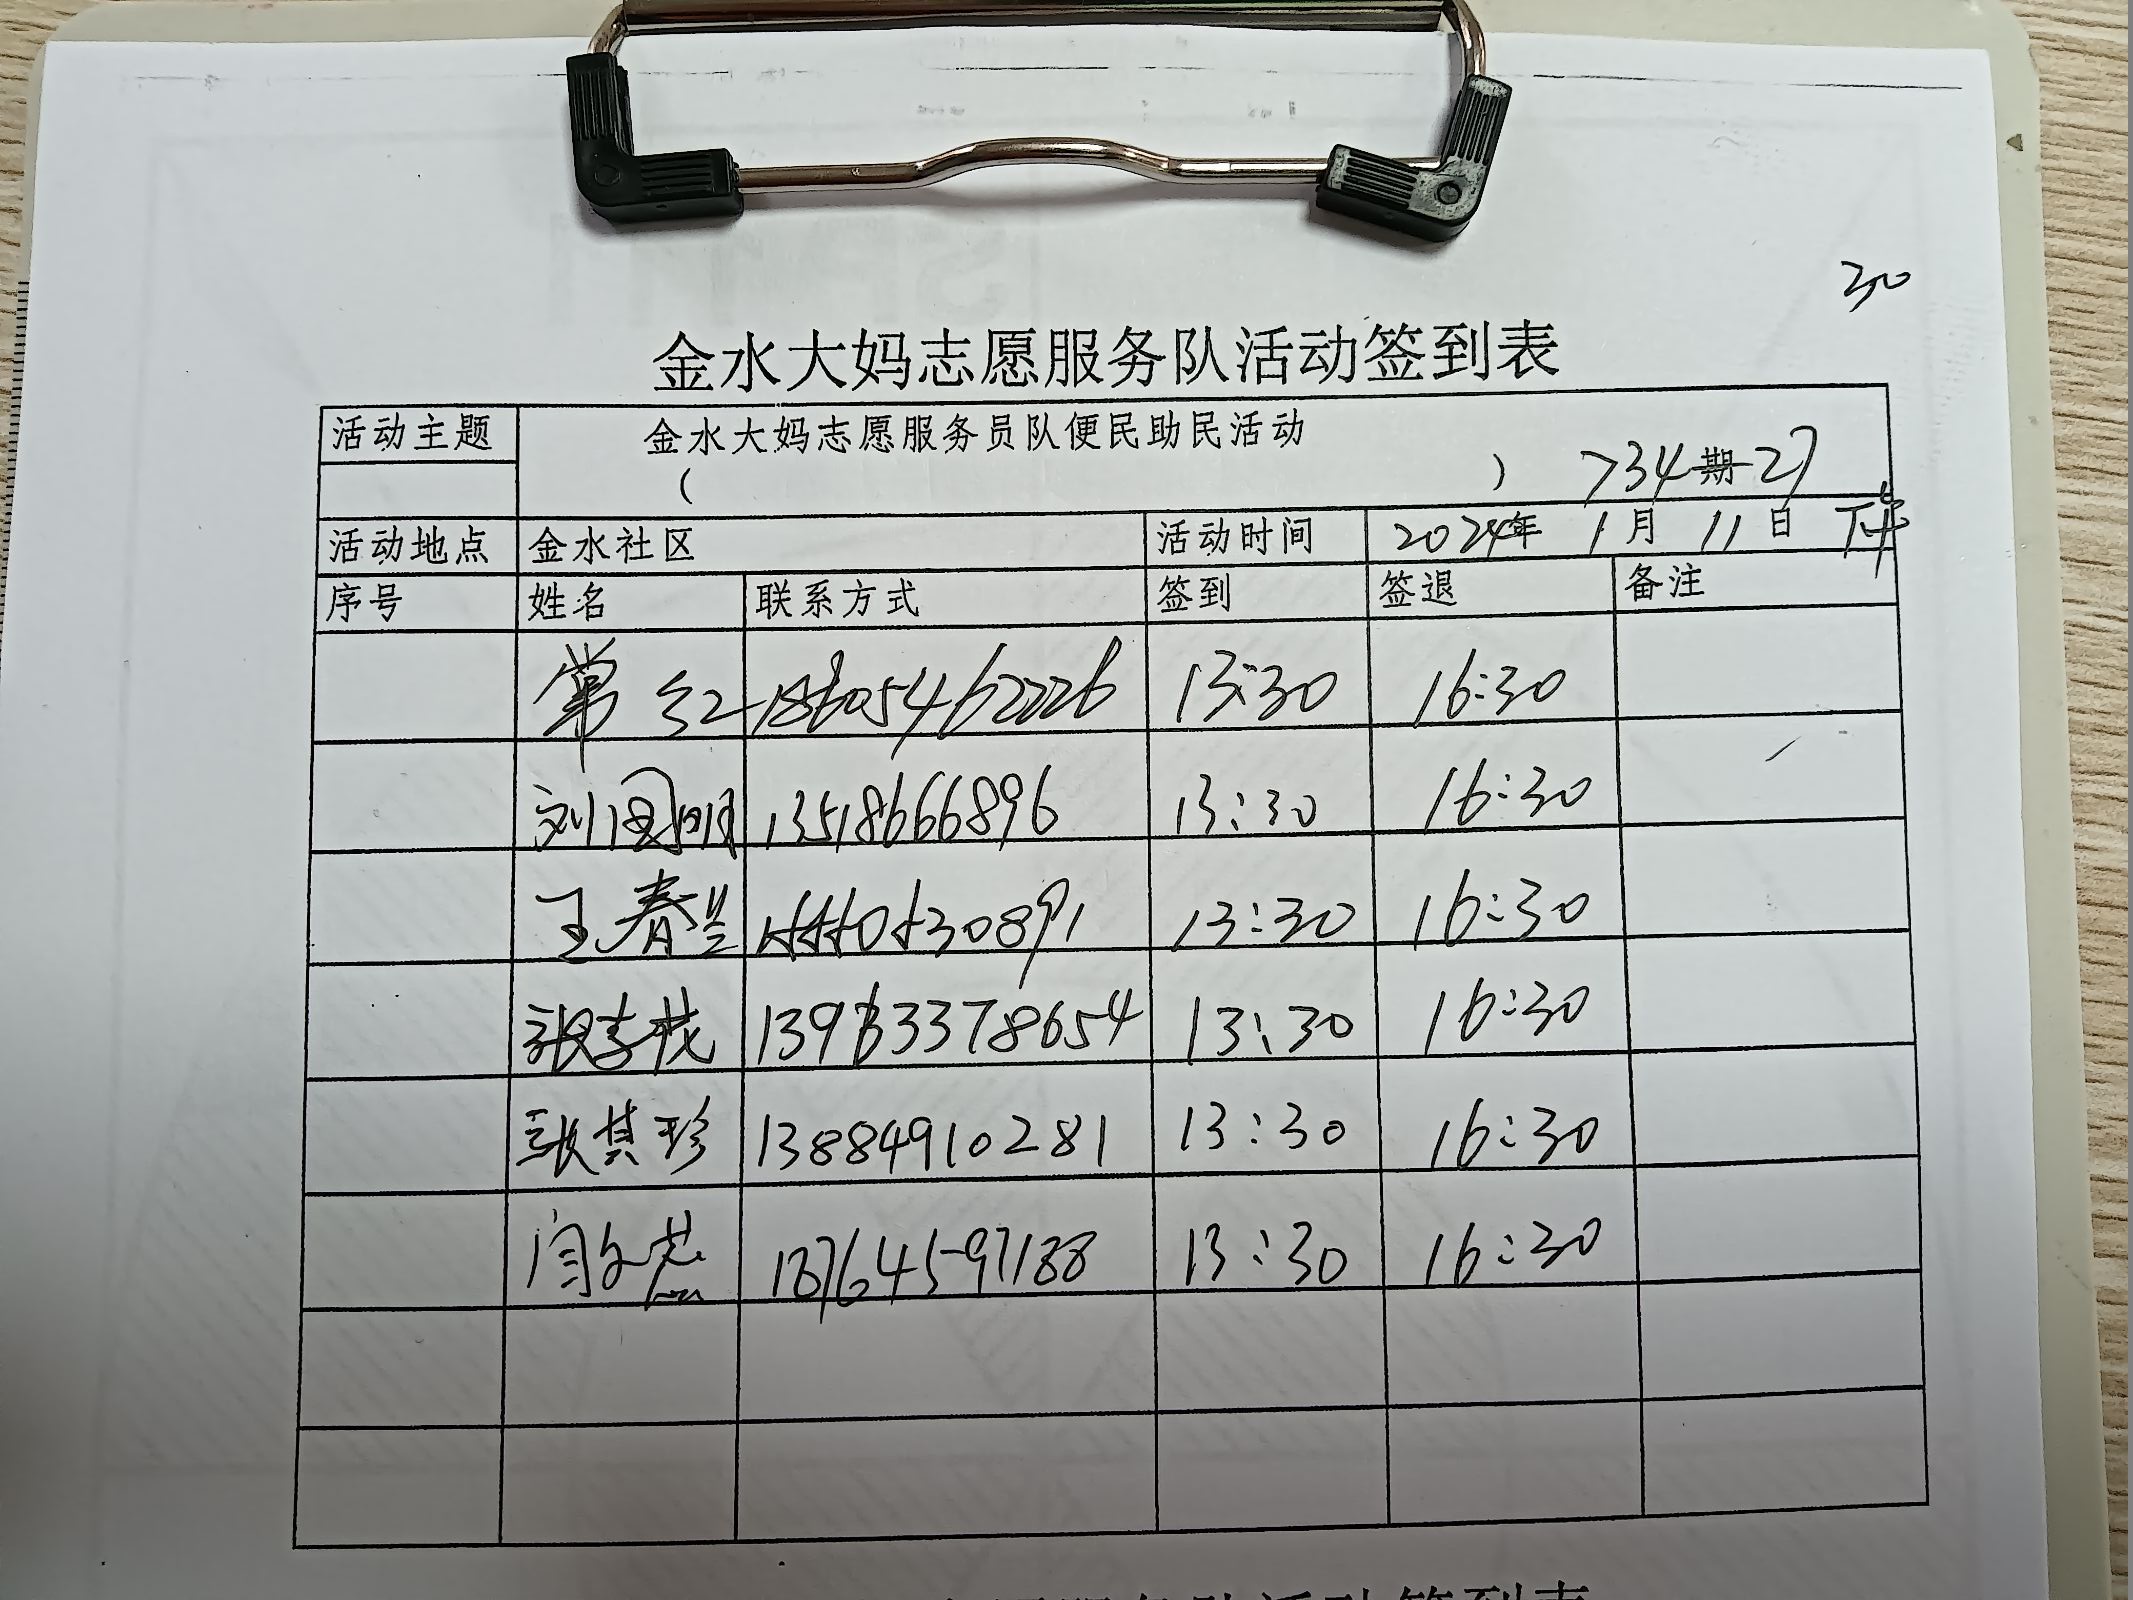 30
金水大妈志愿服务队活动签到表
活动主题 金水大妈志愿服务员队便民助民活动
( ) 734期27
活动地点 金水社区 活动时间 2024年 1月 11日 下午
序号 姓名 联系方式 签到 签退 备注
常红 18605462226 13:30 16:30
刘国明 13518666896 13:30 16:30
王春兰 13:30 16:30
张李茂 13963378654 13:30 16:30
张其珍 13884910281 13:30 16:30
闫文芯 18764597188 13:30 16:30
服务队活动签到表